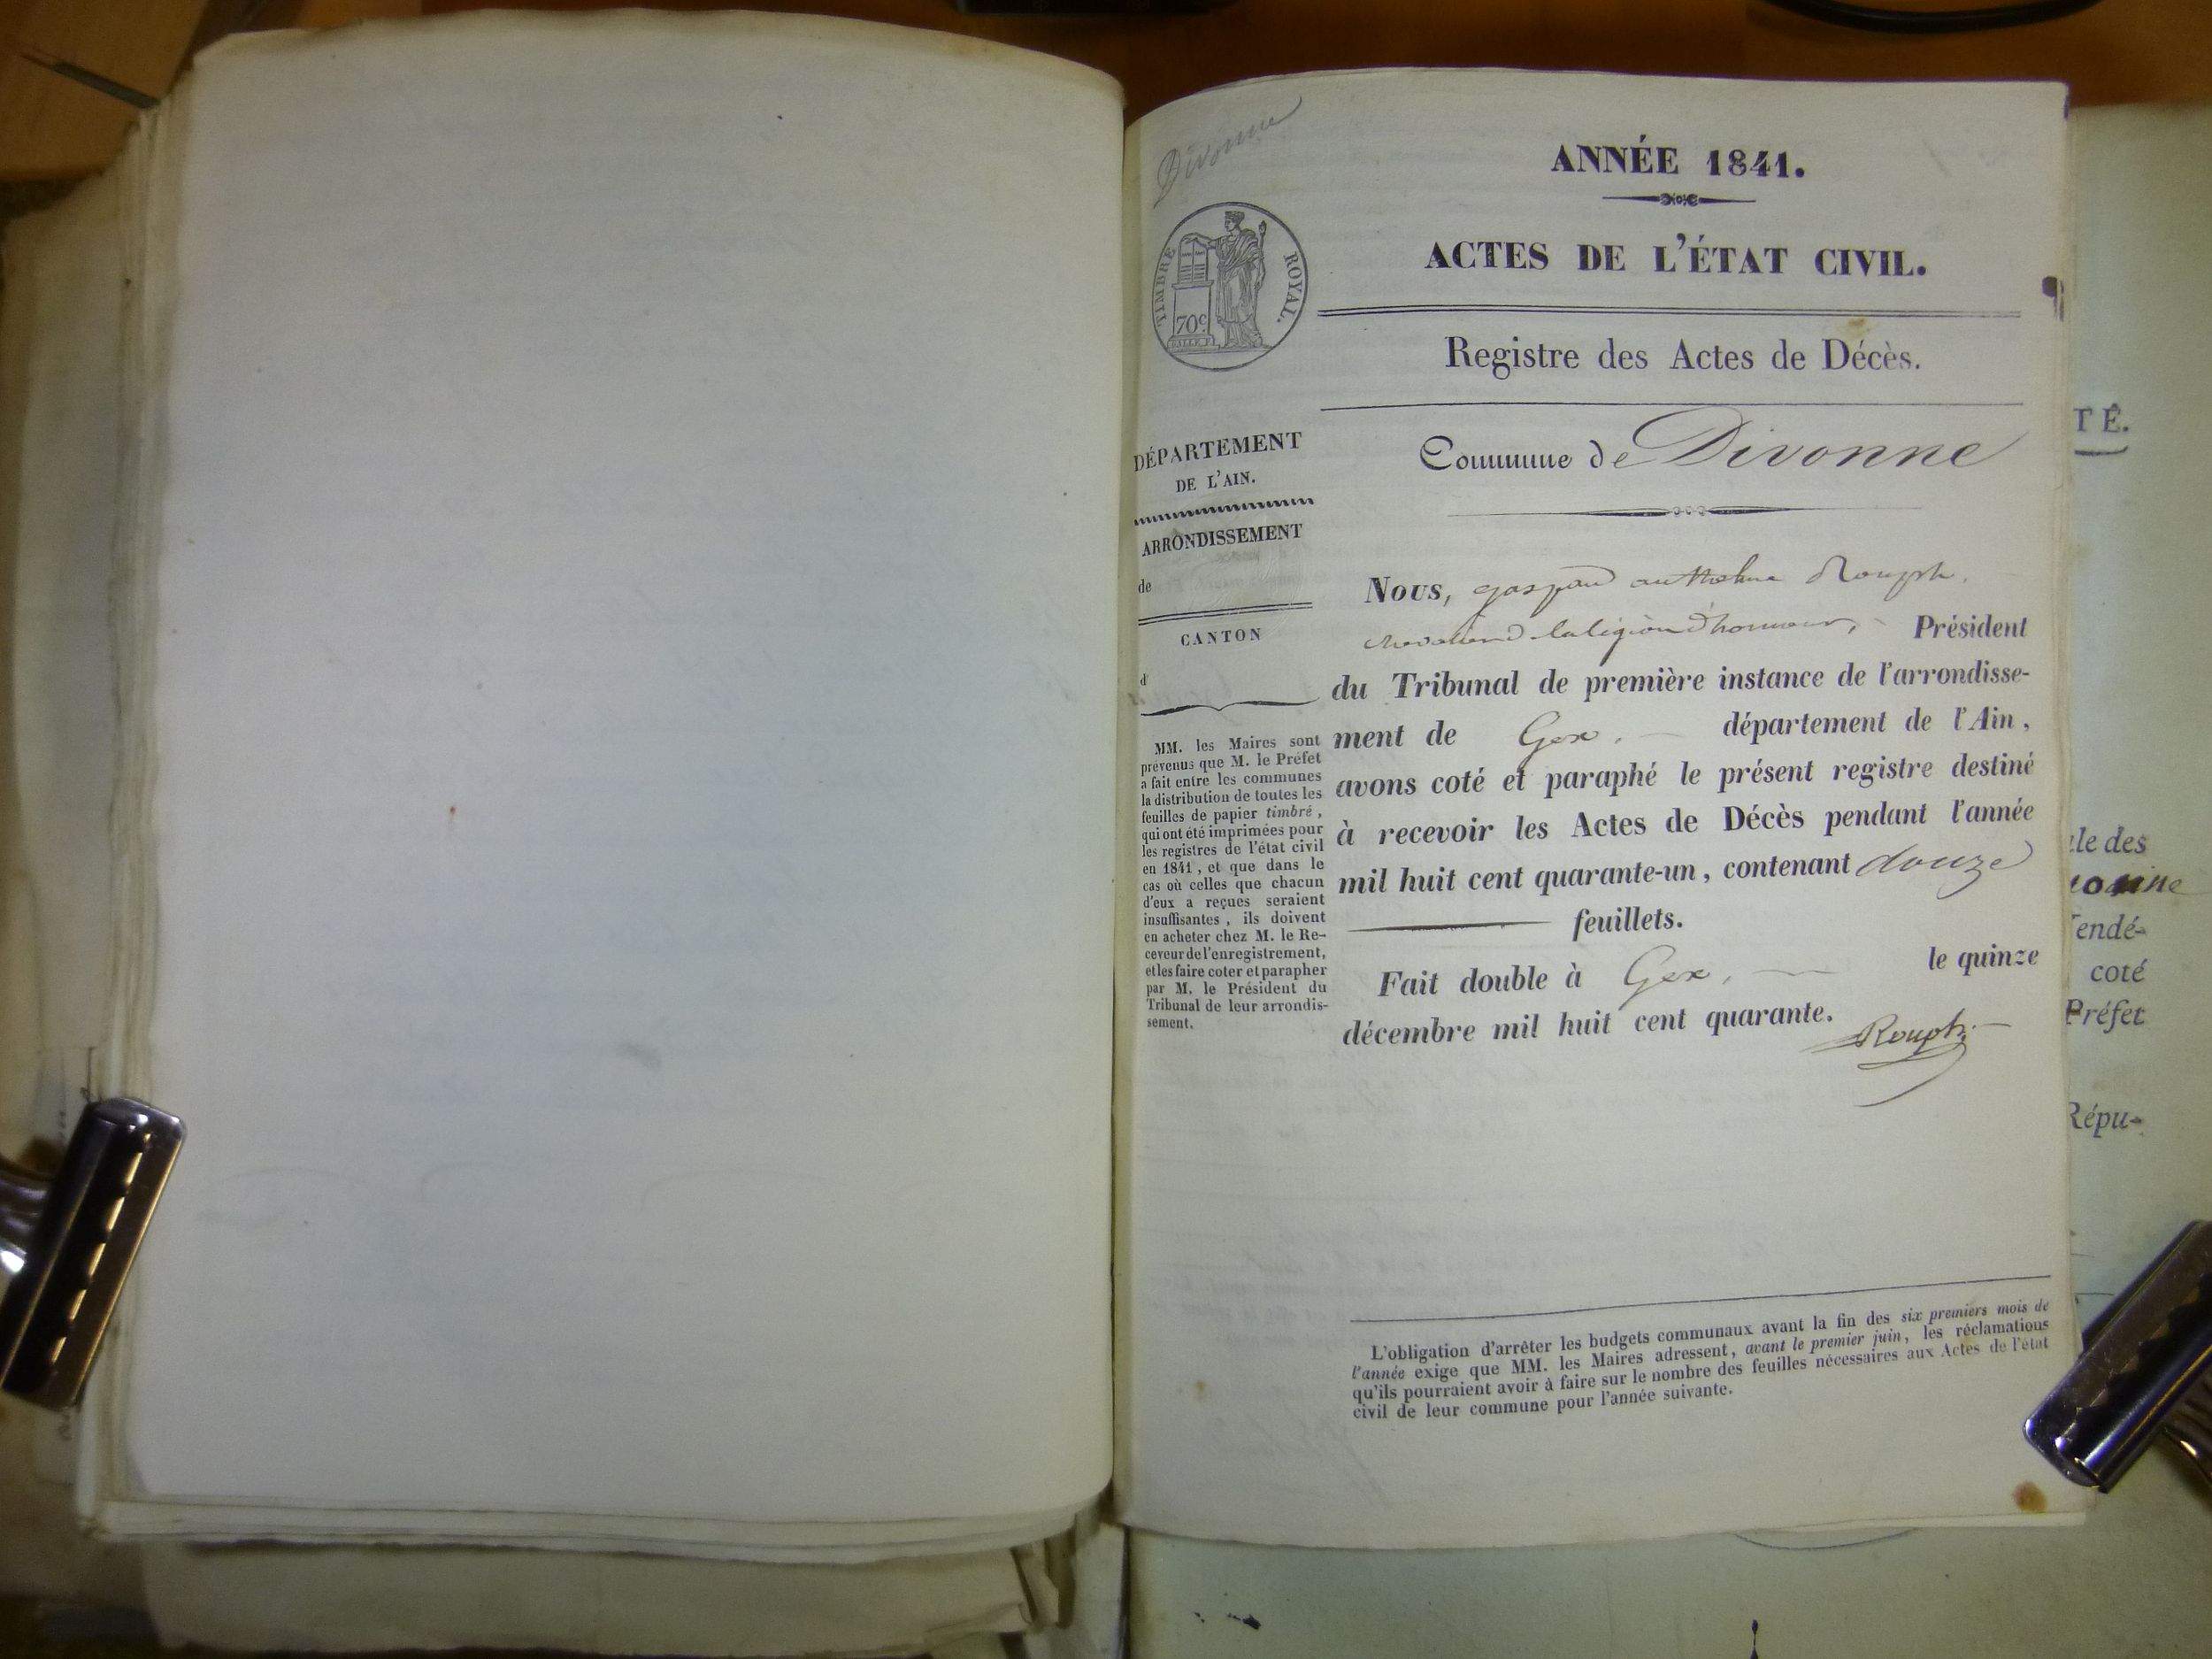 Divonne
ANNÉE 1841.
ACTES DE L'ÉTAT CIVIL.
TIMBRE ROYAL.
70c
Registre des Actes de Décès.
Commune de Divonne
DÉPARTEMENT
DE L'AIN.
ARRONDISSEMENT
de
CANTON
d
MM. les Maires sont
prévenus que M. le Préfet
a fait entre les communes
la distribution de toutes les
feuilles de papier timbré,
qui ont été imprimées pour
les registres de l'état civil
en 1841, et que dans le
cas où celles que chacun
d'eux a reçues seraient
insuffisantes, ils doivent
en acheter chez M. le Re-
ceveur de l'enregistrement,
et les faire coter et parapher
par M. le Président du
Tribunal de leur arrondis-
sement.
Nous, gaspard anthelme Rouph,
chevalier d la légion d'honneur, - Président
du Tribunal de première instance de l'arrondisse-
ment de Gex. — département de l'Ain,
avons coté et paraphé le présent registre destiné
à recevoir les Actes de Décès pendant l'année
mil huit cent quarante-un, contenant douze
feuillets.
Fait double à Gex, — le quinze
décembre mil huit cent quarante.
Rouph
L'obligation d'arrêter les budgets communaux avant la fin des six premiers mois de
l'année exige que MM. les Maires adressent, avant le premier juin, les réclamations
qu'ils pourraient avoir à faire sur le nombre des feuilles nécessaires aux Actes de l'état
civil de leur commune pour l'année suivante.
TÉ.
le des
endé-
coté
Préfet
Répu-